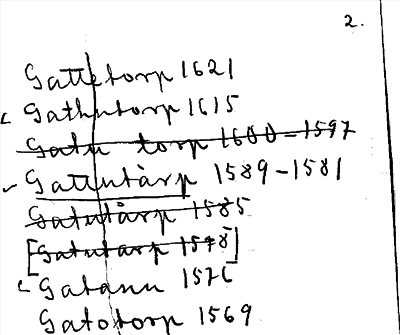 2.
Gattetorp 1621
Gathutorp 1615
Gatu torp 1600-1597
Gattutårp 1589-1581
Gatutårp 1585
[Gatutarp 1578]
Gatann 1576
Gatotorp 1569